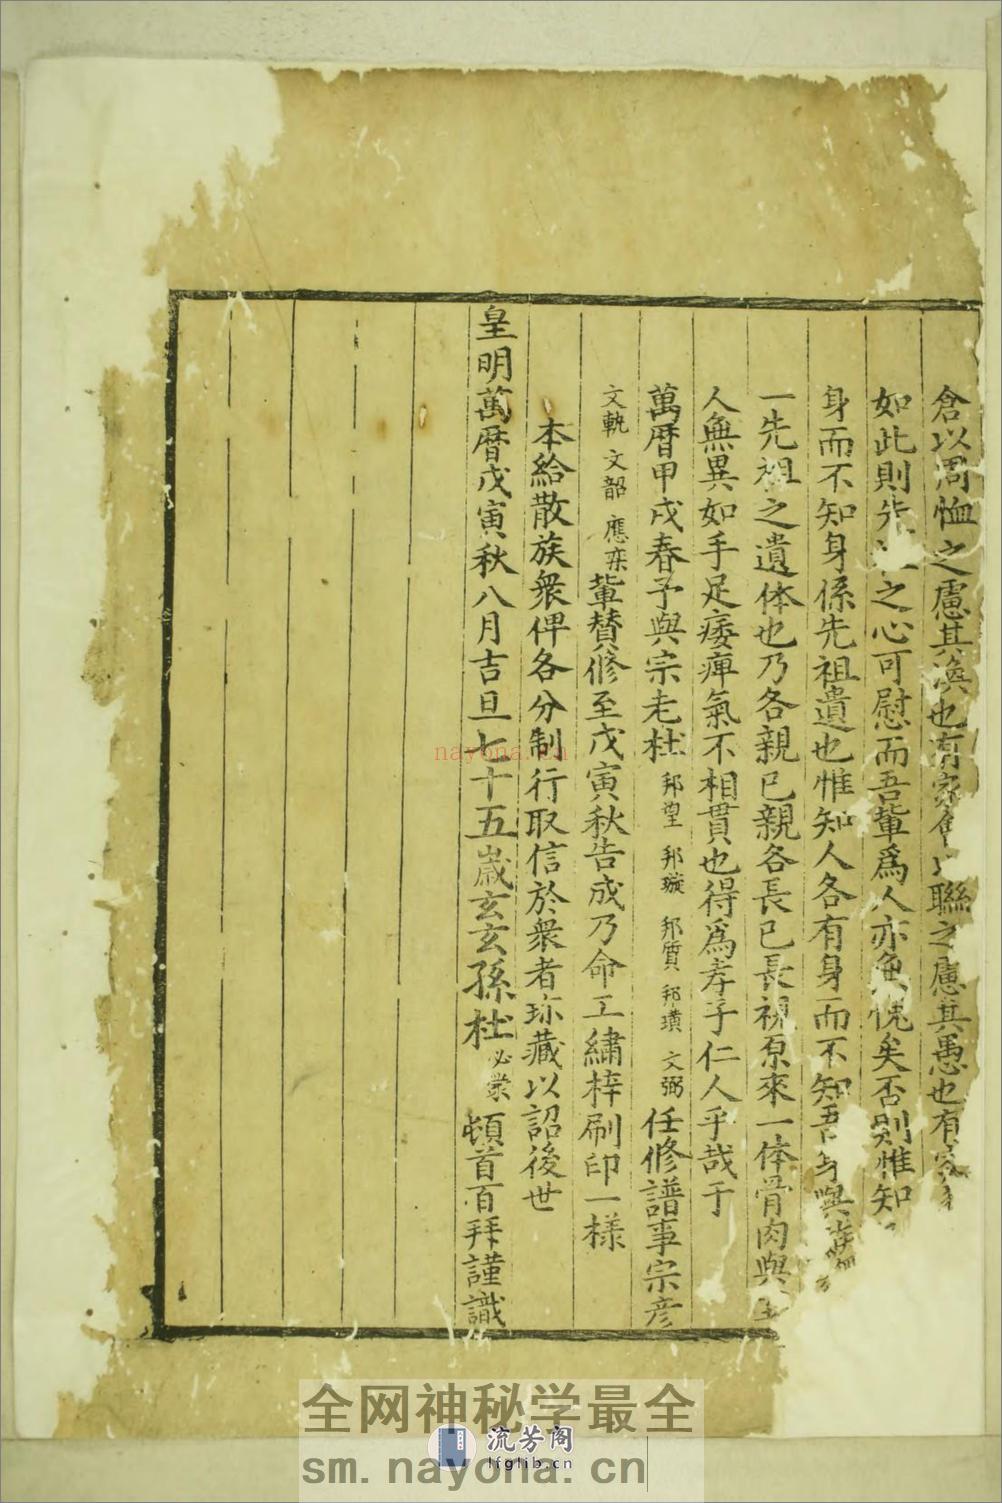 倉以周恤之慮其渙也有家以聯之慮其愚也有家
如此則先之心可慰而吾輩爲人亦無愧矣否則惟知
身而不知身係先祖遺也惟知人各有身而不知吾身與
一先祖之遺体也乃各親已親各長已長視原來一体骨肉與
人無異如手足痿痺氣不相貫也得爲孝子仁人乎哉于
萬曆甲戌春予與宗老杜邦望邦璇邦質邦璜文弼任修譜事宗彥
文軌文韶應宷輩賛修至戊寅秋告成乃命工繡梓刷印一樣
本給散族衆俾各分制行取信於衆者珎藏以詔後世
皇明萬曆戊寅秋八月吉旦七十五歲玄玄孫杜必榮頓首百拜謹識
nayona.cn
全网神秘学最全
流芳阁
lfglib.cn
sm.nayona.cn